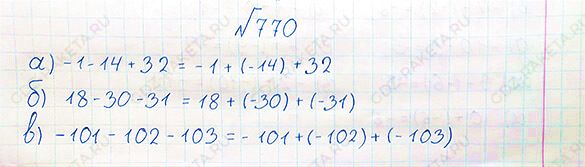 √770
а) -1 - 14 + 32 = -1 + (-14) + 32
б) 18 - 30 - 31 = 18 + (-30) + (-31)
в) -101 - 102 - 103 = -101 + (-102) + (-103)